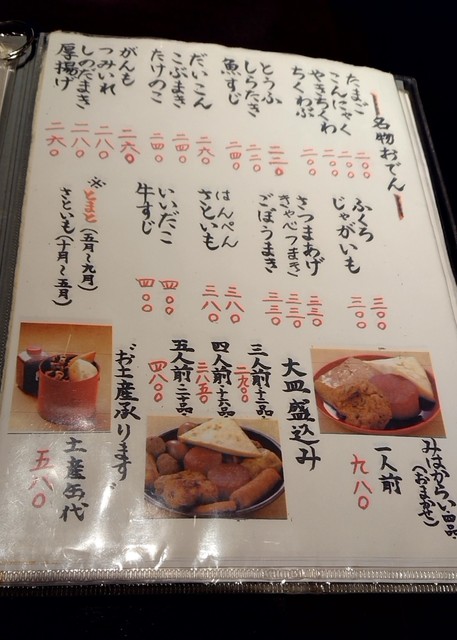 名物おでん
たまご 二〇〇
こんにゃく 二〇〇
やきちくわ 二〇〇
ちくわぶ 二〇〇
とうふ
しらたき
魚すじ 二四〇
だいこん 二六〇
こぶまき 二四〇
たけのこ 二四〇
がんも 二六〇
つみいれ 二八〇
しのだまき 二八〇
厚揚げ 二六〇
ふくろ 三〇〇
じゃがいも 三〇〇
さつまあげ 三三〇
きゃべつまき 三三〇
ごぼうまき 三三〇
はんぺん 三八〇
さといも 三八〇
いいだこ 四〇〇
牛すじ 四〇〇
※とまと(五月〜九月)
さといも(十月〜五月)
みはからい四品
(おまかせ)
一人前 九八〇
大皿盛込み
三人前 十二品 二九〇〇
四人前 十六品 三八五〇
五人前 二十品 四八〇〇
"お土産承ります"
土産缶代
五八〇